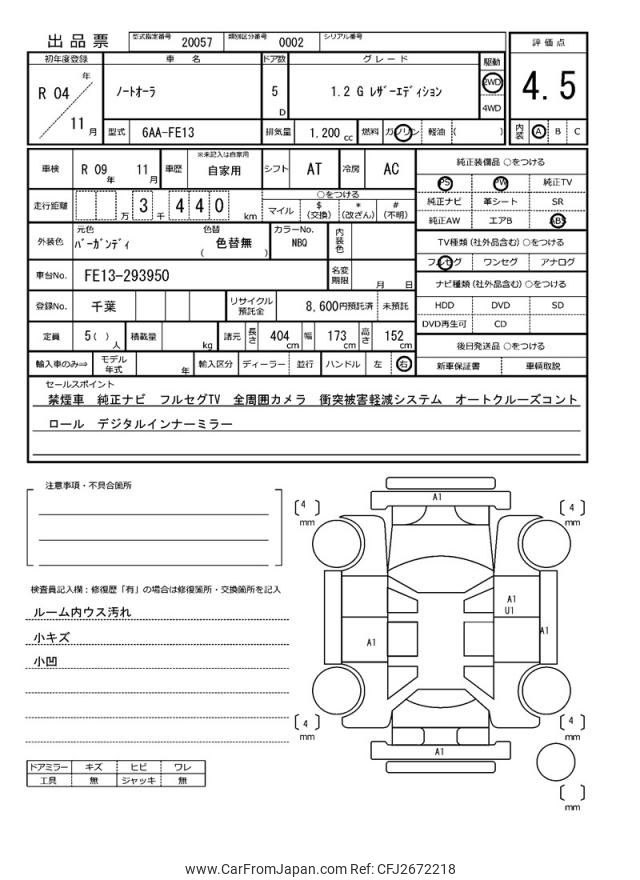 出品票 型式指定番号 20057 類別区分番号 0002 シリアル番号
評価点
4.5
内装 A B C
初年度登録 車名 ドア数 グレード 駆動
R 04 年 11 月 ノートオーラ 5 D 1.2 G レザーエディション 2WD 4WD
型式 6AA-FE13 排気量 1.200 cc 燃料 ガソリン 軽油 ( )
車検 R 09 年 11 月 車歴 ※未記入は自家用 自家用 シフト AT 冷房 AC
走行距離 万 3 千 4 4 0 km ○をつける
マイル $ (交換) * (改ざん) # (不明)
外装色 元色 バーガンディ 色替 ( 色替無 ) カラーNo. NBQ 内装色
車台No. FE13-293950 名変期限 月 日
登録No. 千葉 リサイクル預託金 8,600円預託済 未預託
定員 5( ) 人 積載量 kg 諸元 長さ 404 cm 幅 173 cm 高さ 152 cm
輸入車のみ⇒ モデル年式 年 輸入区分 ディーラー 並行 ハンドル 左 右
純正装備品 ○をつける
PS PW 純正TV
純正ナビ 革シート SR
純正AW エアB ABS
TV種類 (社外品含む) ○をつける
フルセグ ワンセグ アナログ
ナビ種類 (社外品含む) ○をつける
HDD DVD SD
DVD再生可 CD
後日発送品 ○をつける
新車保証書 車輌取説
セールスポイント
禁煙車 純正ナビ フルセグTV 全周囲カメラ 衝突被害軽減システム オートクルーズコント
ロール デジタルインナーミラー
注意事項・不具合箇所
検査員記入欄：修復歴「有」の場合は修復箇所・交換箇所を記入
ルーム内ウス汚れ
小キズ
小凹
ドアミラー キズ ヒビ ワレ
工具 無 ジャッキ 無
[4] mm
A1
[4] mm
A1
U1
A1
A1
[4] mm
A1
[4] mm
[ ] mm
www.CarFromJapan.com Ref: CFJ2672218